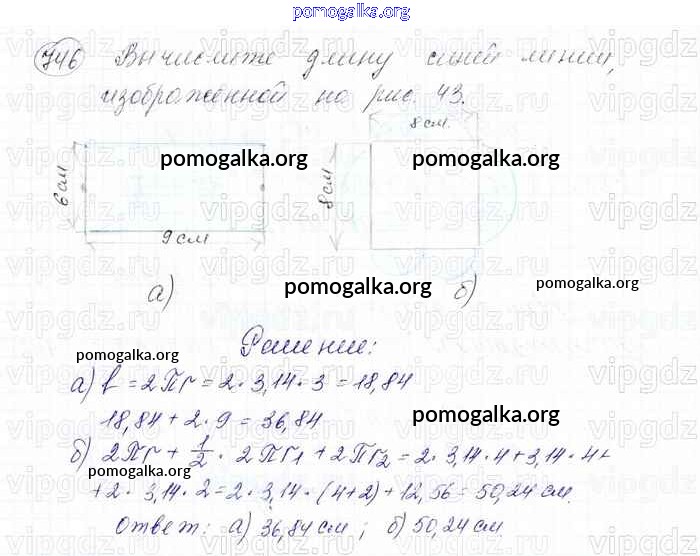 pomogalka.org
746 Вычислите длину синей линии,
изображённой на рис. 43.
8 см.
pomogalka.org pomogalka.org
6 см
8 см
9 см
а) pomogalka.org б) pomogalka.org
Решение:
pomogalka.org
а) l = 2Пr = 2 · 3,14 · 3 = 18,84
18,84 + 2 · 9 = 36,84
pomogalka.org
б) 2Пr + 1/2 · 2Пr1 + 2Пr2 = 2 · 3,14 · 4 + 3,14 · 4 +
pomogalka.org
+ 2 · 3,14 · 2 = 2 · 3,14 · (4+2) + 12,56 = 50,24 см.
Ответ: а) 36,84 см; б) 50,24 см.
pomogalka.org